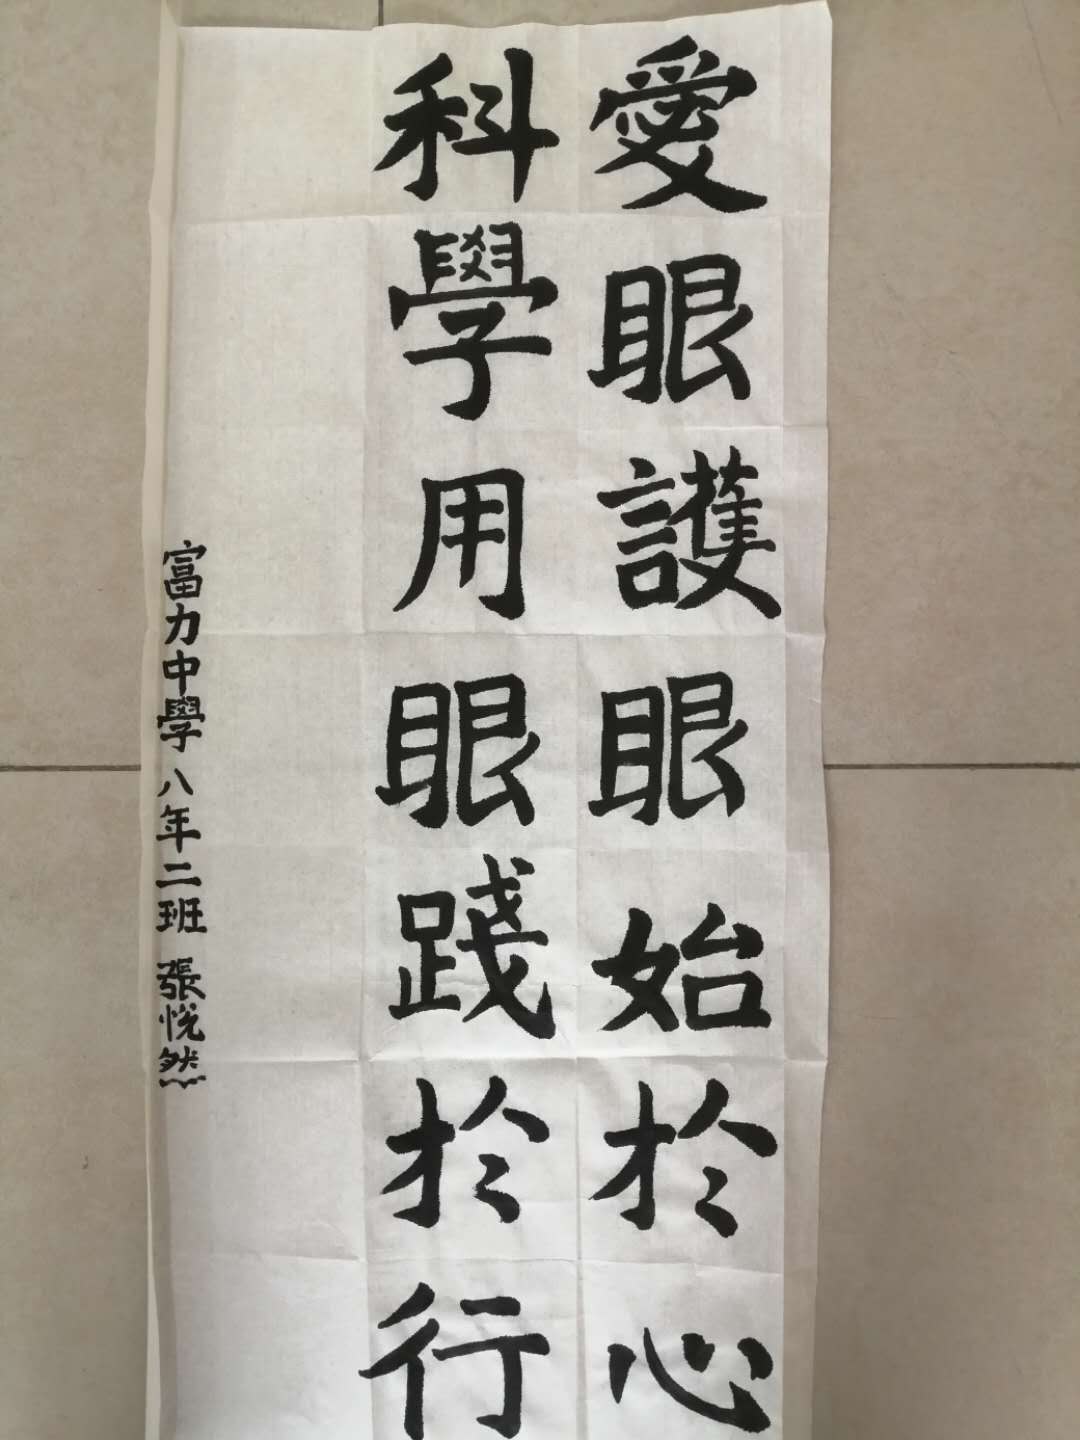 愛眼護眼始於心
科學用眼踐於行
富力中學八年二班 張悅然